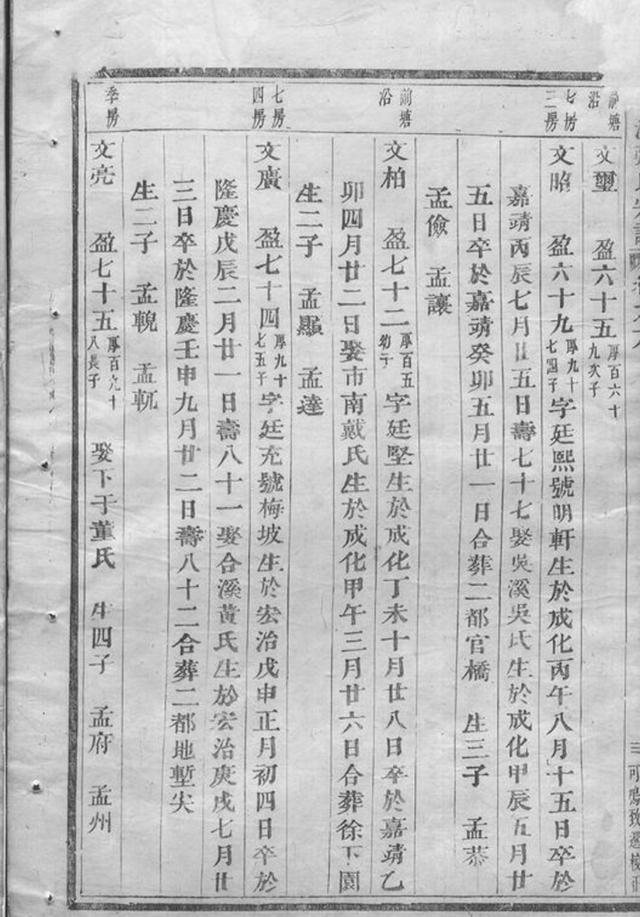 前塘沿
文璽 盈六十五 厚百六十九次子
七房三房
文昭 盈六十九 厚九十七四子 字廷熙號明軒生於成化丙午八月十五日卒於
嘉靖丙辰七月廿五日壽七十七娶吳溪吳氏生於成化甲辰五月廿
五日卒於嘉靖癸卯五月廿一日合葬二都官橋 生三子 孟恭
孟儉 孟讓
前塘沿
文柏 盈七十二 厚百五幼子 字廷堅生於成化丁未十月廿八日卒於嘉靖乙
卯四月廿二日娶市南戴氏生於成化甲午三月廿六日合葬徐下園
生二子 孟顯 孟達
七房四房
文廣 盈七十四 厚九十七五子 字廷充號梅坡生於宏治戊申正月初四日卒於
隆慶戊辰二月廿一日壽八十一娶合溪黃氏生於宏治庚戌七月廿
三日卒於隆慶壬申九月廿二日壽八十二合葬二都地塹尖
生二子 孟輗 孟軏
季房
文亮 盈七十五 厚百九十八長子 娶下于董氏 生四子 孟府 孟州